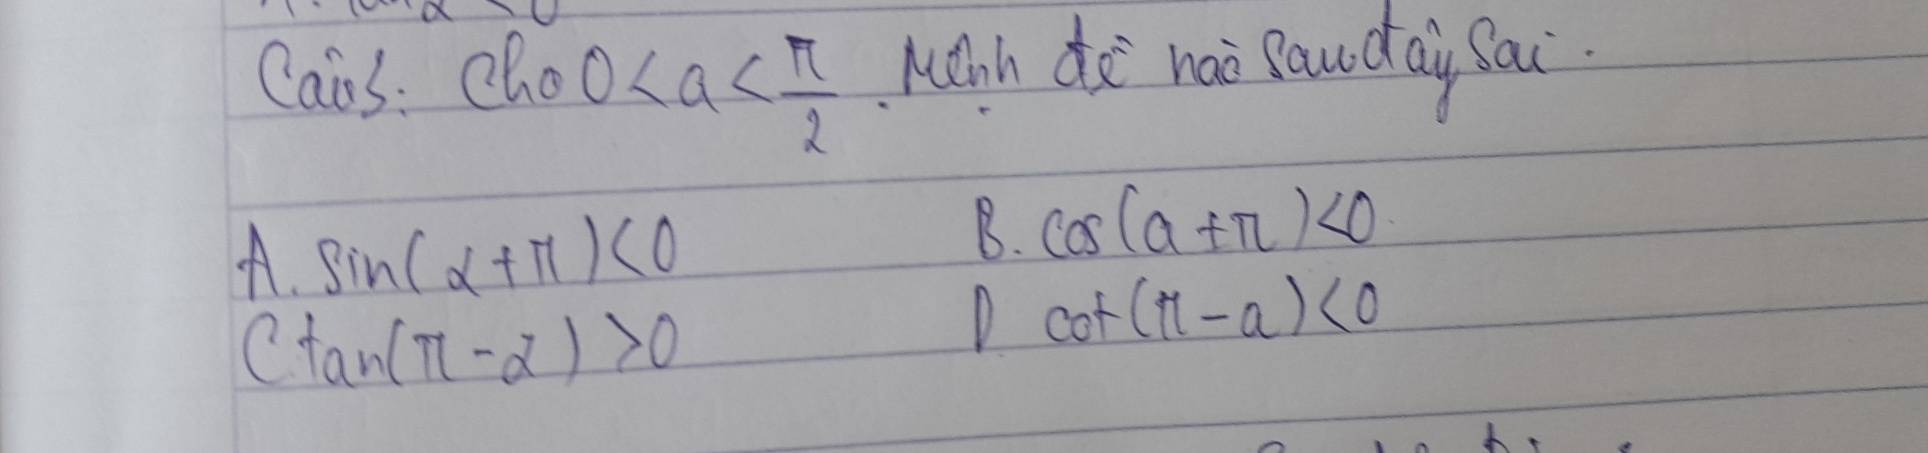 Câu 5: Cho 0 < a < π/2. Mệnh đề nào sau đây sai.
A. sin(α + π) < 0 B. cos(a + π) < 0.
C. tan(π - α) > 0 D cot(π - a) < 0